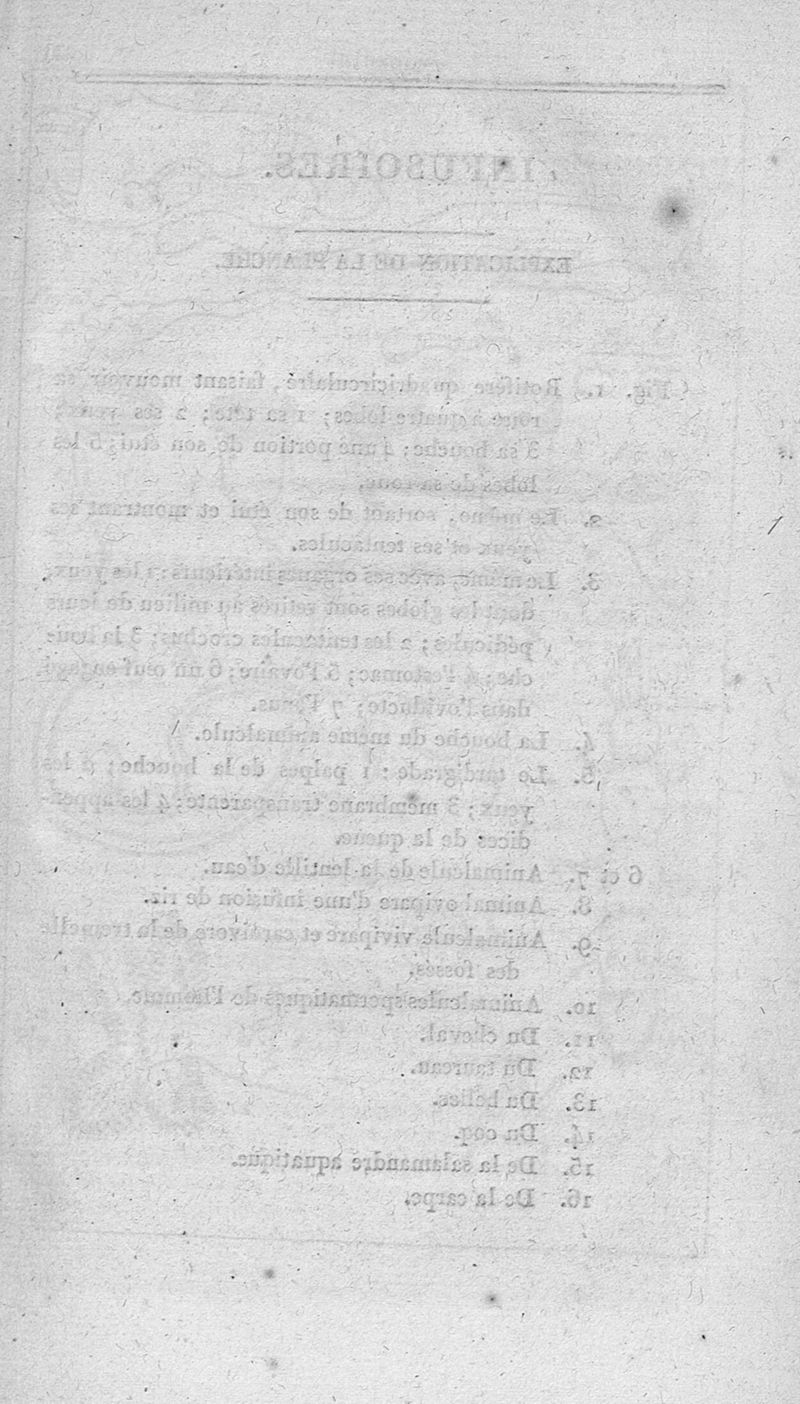 INFUSOIRES.
EXPLICATION DE LA PLANCHE.
Fig. 1. Rotifère quadricirculaire, faisant mouvoir sa
roue à quatre lobes; 1 sa tête; 2 ses yeux;
3 sa bouche; 4 une portion de son étui; 5 les
lobes de sa roue.
2. Le même, sortant de son étui et montrant ses
yeux et ses tentacules.
3. Le même, avec ses organes intérieurs: 1 les yeux,
dont les globes sont retirés au milieu de leurs
pédicules; 2 les tentacules crochus; 3 la bou-
che; 4 l'estomac; 5 l'ovaire; 6 un œuf engagé
dans l'oviducte; 7 l'anus.
4. La bouche du même animalcule.
5. Le tardigrade: 1 palpes de la bouche; 2 les
yeux; 3 membrane transparente; 4 les appen-
dices de la queue.
6 et 7. Animalcule de la lentille d'eau.
8. Animal ovipare d'une infusion de riz.
9. Animalcule vivipare et carnivore de la tremelle
des fossés.
10. Animalcules spermatiques de l'homme.
11. Du cheval.
12. Du taureau.
13. Du belier.
14. Du coq.
15. De la salamandre aquatique.
16. De la carpe.